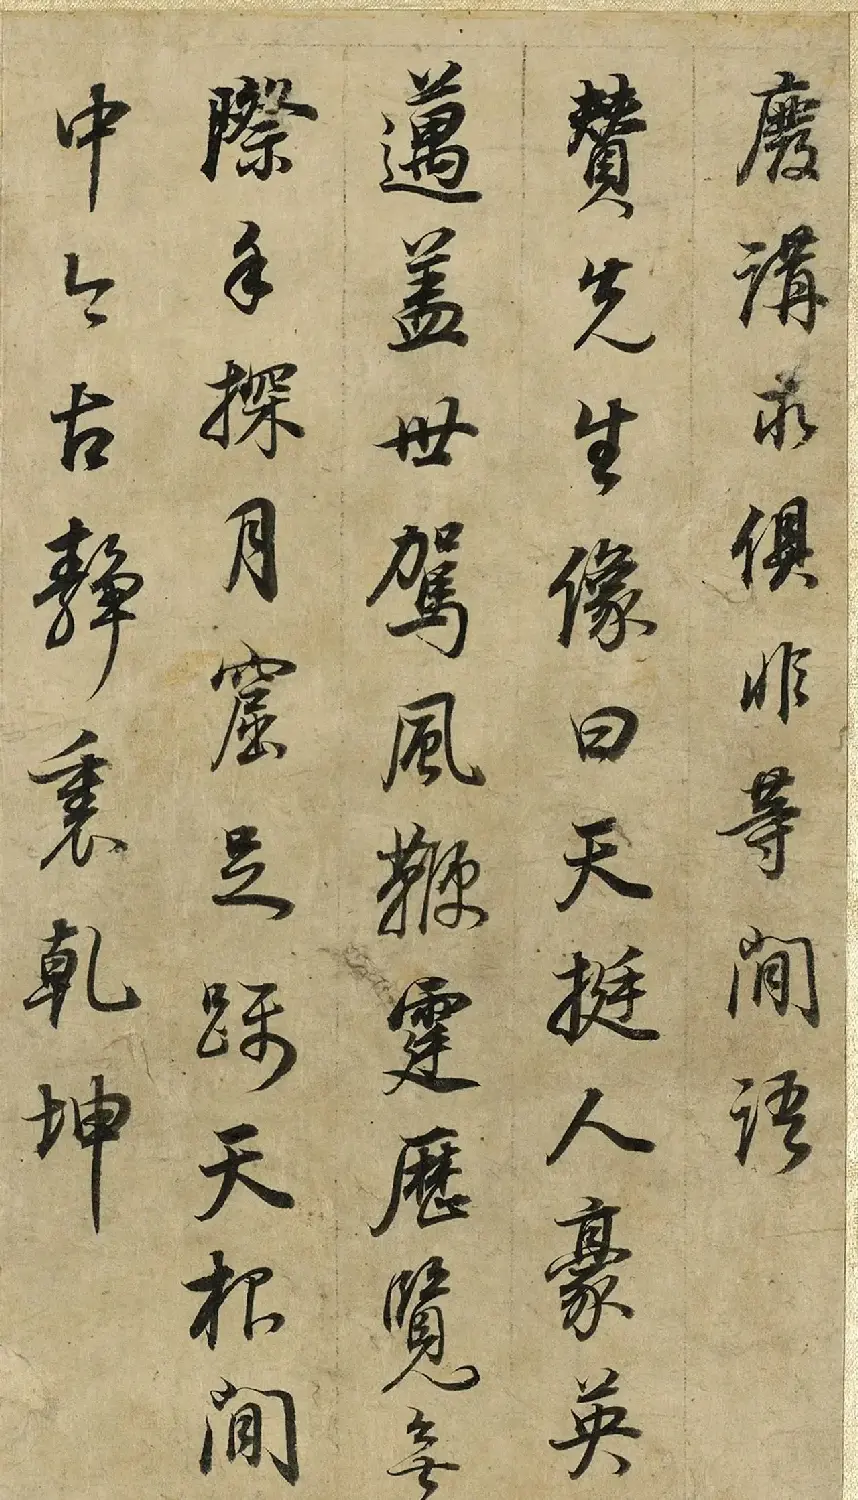 廢講求俱非等閒語
贊先生像曰天挺人豪英
邁蓋世駕風鞭霆歷覽無
際手探月窟足躡天根閒
中今古靜裏乾坤